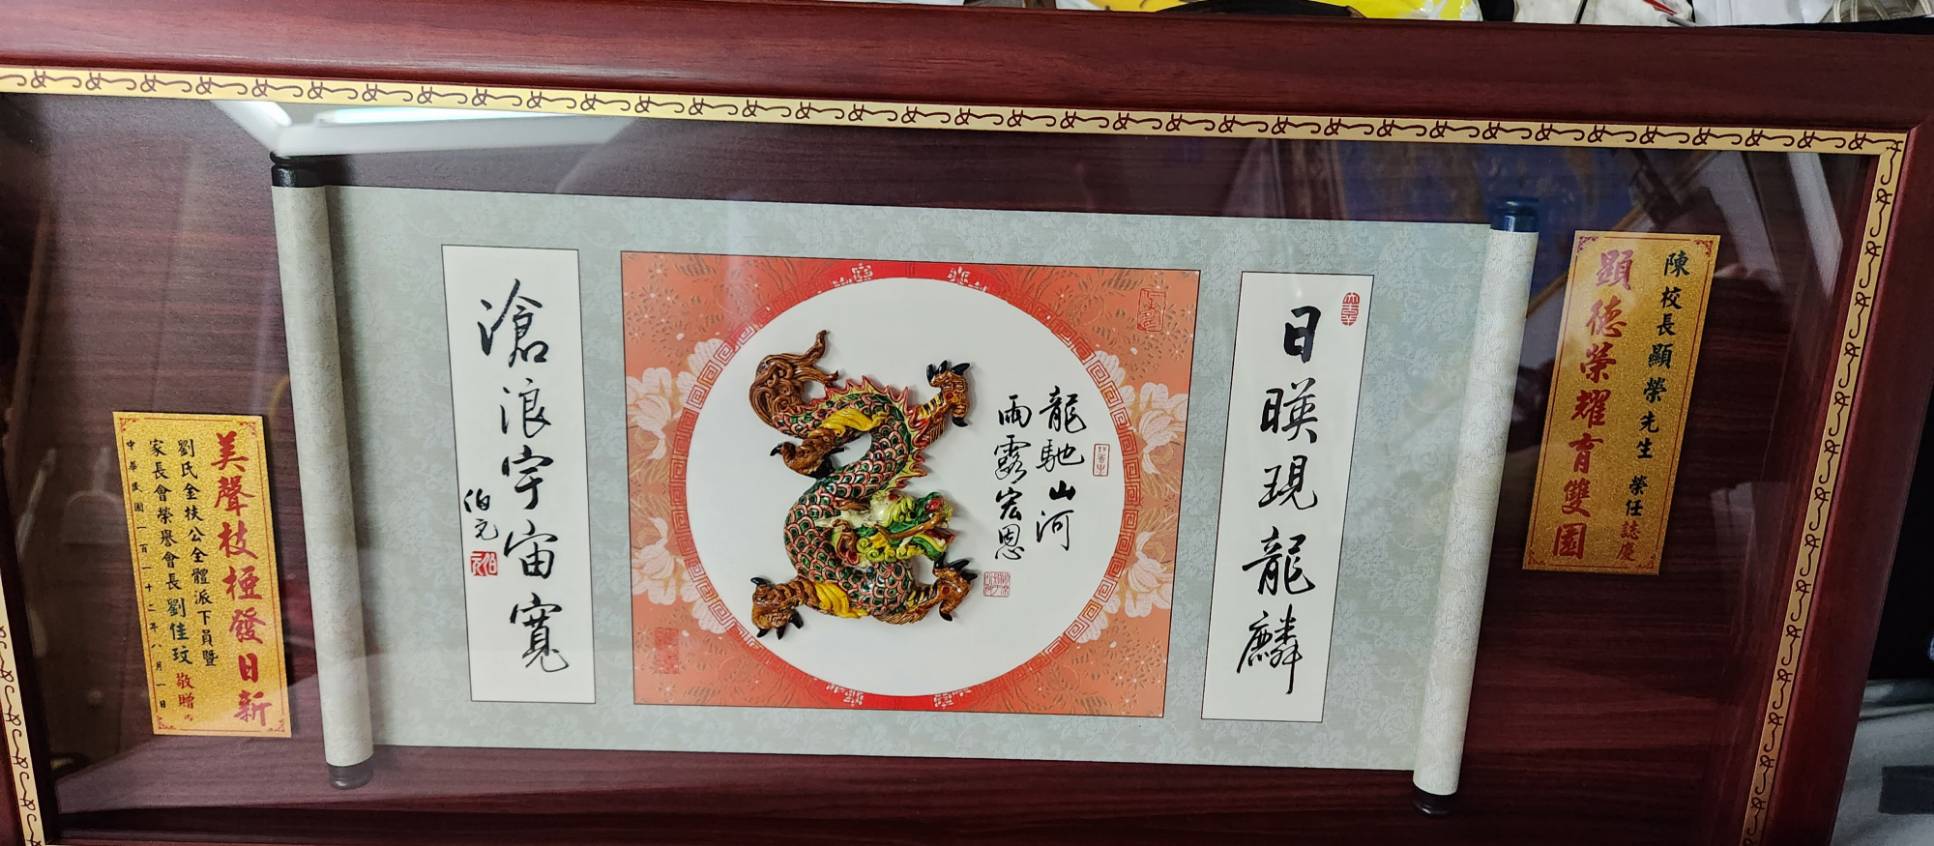 陳校長顯榮先生 榮任誌慶
顯德榮耀育雙園
日暎現龍麟
龍馳山河
雨露宏恩
滄浪宇宙寬
伯元
美聲枝極發日新
劉氏金扶公全體派下員暨
家長會榮譽會長劉佳玟 敬贈
中華民國一百一十二年八月一日